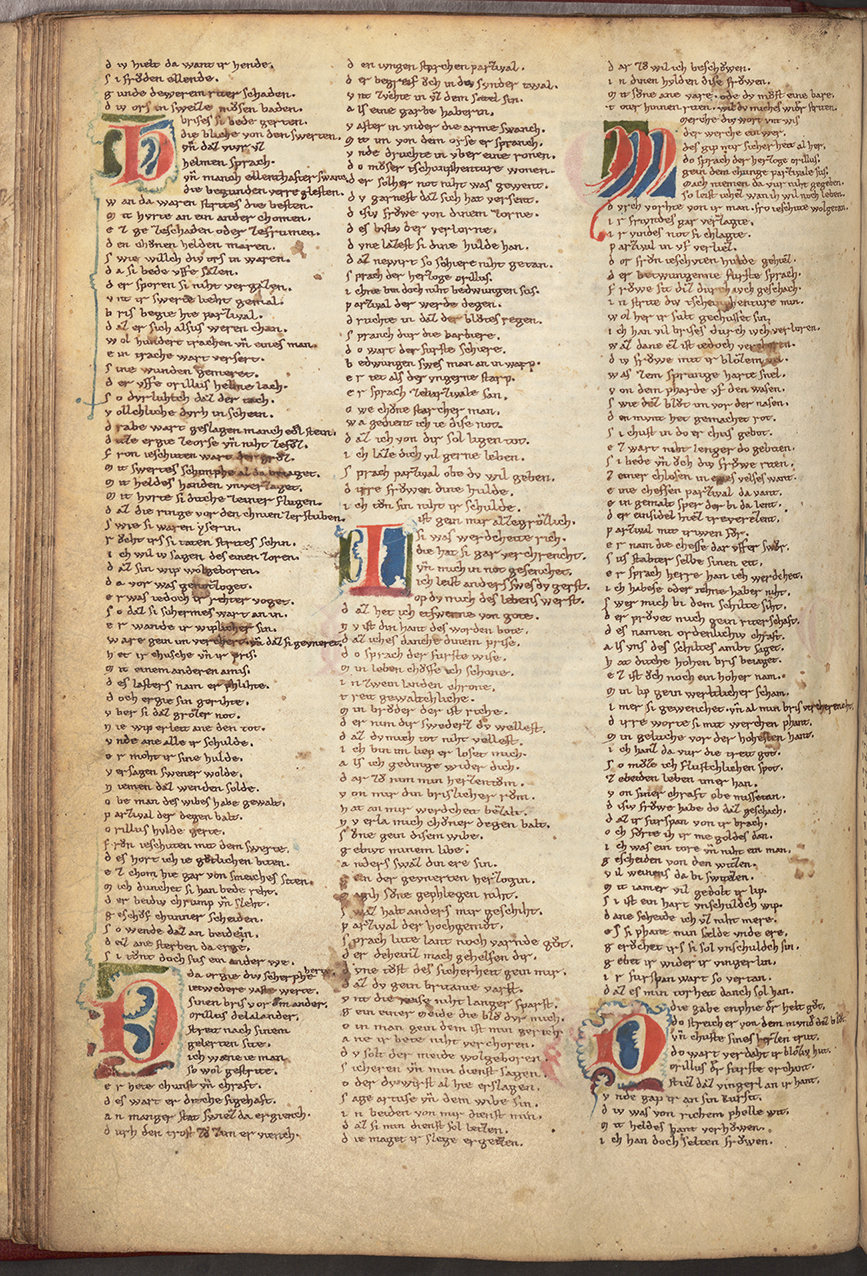 d iv hielt da want ir hende.
s i fröden ellende.
g unde dewerem riter schaden.
d iv ors in sweizze mosen baden.
brises si bede gerten.
die bliche von den swerten.
vñ daz viur vz
helmen sprach.
vñ manch ellenthafter swanc
die begunden verre glesten.
w an da waren strites die besten.
m it hvrte an ein ander chomen.
e z ge zeschaden oder zefrumen.
d en chonen helden maren.
s wie willch div ors in waren.
d a si bede vffe sazen.
d er sporen si niht vergazen.
v nt ir swerde lieht gemal.
b ris begie hie parzival.
d az er sich alsus weren chan.
w ol hundert trachen vñ eines man.
e in trache wart versert.
s ine wunden gemeret.
d er vffe orillus helme lach.
s o dvrluhtch daz der tach.
v ollechliche dvrh in schein.
d rabe wart geslagen manch edel stein.
d ez ergie zeorse vñ niht zefoz.
f ron ieschuten wart der groz.
m it swertes schimphe al da beiaget.
m it heldes handen vnverzaget.
m it hvrte si diche zeiner flugen.
d az die ringe vor den chnien zerstuben.
s wie si waren yserin.
r ocht irs si taten strites schin.
i ch wil iv sagen des einen zoren.
d az sin wip wolgeboren.
d a vor was genotzoget.
e r was iedoch ir rehter voget.
s o daz si schermes wart an in.
e r wande ir wiplicher sin.
w are gein im vercheret vñ daz si geuneret.
h et ir chusche vñ ir pris.
m it einem anderen amis.
d es lasters nam er phlihte.
d och ergie sin gerihte.
v ber si daz grozer not.
n ie wip erleit ane den tot.
v nde ane alle ir schulde.
e r moht ir sine hulde.
v ersagen swener wolde.
n iemen daz wenden solde.
o be man des wibes habe gewalt.
p arzival der degen balt.
o rillus hylde gerte.
f ron ieschuten mit dem swerte.
d es hort ich ie gotlichen biten.
e z chom hie gar von smeiches siten.
m ich dunchet si han bede reht.
d er beidiv chrump vñ sleht.
g eschof chunner scheiden.
s o wende daz an beiden.
d eiz ane sterben da erge.
s i tont doch sus ein ander we.
da ergie div scherphe herte.
ietwedere vaste werte.
sinen bris vor dem ander.
orillus delalander.
streit nach sinem
gelerten site.
ich wane ie man
so wol gestrite.
e r hete chunst vñ chraft.
d es wart er diche sigehaft.
a n manger stat swiez da ergiench.
d urh den trost zo zim er viench.
d en iungen starchen parzival.
d er begreif och in do svnder twal.
v nt zvchte in vz dem satel sin.
a ls eine garbe haberin.
v aster in vnder die arme swanch.
m it im von dem orse er spranch.
v nde druchte in vber eine ronen.
d o moser tschumphenture wonen.
d er solher not niht was gewent.
d v garnest daz sich hat versent.
d isiv frowe von dinem zorne.
d es bistv der verlorne.
d vne lazest si dine hulde han.
d az newirt so schiere niht getan.
s prach der herzoge orillus.
i chne bin doch niht bedwungen sus.
p artzival der werde degen.
d ruchte in daz der blotes regen.
s pranch dur die barbiere.
d o wart der furste schiere.
b edwungen swes man an in warp.
e r tet als der vngerne starp.
e r sprach zeparzivale san.
o we chone starcher man.
w a gedient ich ie dise not.
d az ich von dir sol ligen tot.
i ch laze dich vil gerne leben.
s prach parzival obe dv wil geben.
d irre frowen dine hulde.
i ch ton sin niht ir schulde.
ist gein mir alzegrozlich.
si was werdecheite rich.
die hat si gar verchrenchet.
vñ mich in not gesenchet.
ich leist anders swes dv gerst.
op dv mich des lebens werst.
d az het ich etswenne von gote.
n v ist din hant des worden bote.
d az iches danche dinem prise.
d o sprach der furste wise.
m in leben chovffe ich schone.
i n zwein landen chrone.
t reit gewaltchliche.
m in broder der ist riche.
d er nim dir swederz dv wellest.
d az dv mich tot niht vellest.
i ch bin im liep er loset mich.
a ls ich gedinge wider dich.
d ar zo nim min herzentom.
v on mir din brislicher rom.
h at an mir werdcheit bezalt.
n v erla mich choner degen balt.
s one gein disem wibe.
g ebiut minem libe.
a nders swaz din ere sin.
g ein der geunerten herzogin.
m agih sone gephlegen niht.
s waz halt anders mir geschiht.
p arzival der hochgemot.
s prach lute lant noch varnde got.
d er deheinz mach gehelfen dir.
d vne tost des sicherheit gein mir.
d az dv gein britanie varst.
v nt die reise niht langer sparst.
g ein einer meide die blo dvr mich.
o in man gein dem ist min gerich
a ne ir bete niht verchoren.
d v solt der meide wolgeboren.
s icheren vñ min dienst sagen.
o der dv wirst al hie erslagen.
s age artuse vñ dem wibe sin.
i n beiden von mir dienst min.
d az si min dienst sol bezzen.
d ie maget ir slege ergetzen.
d ar zo wil ich beschowen.
i n dinen hylden dise frowen.
m it sone ane vare. ode dv most eine bare.
t our hinnen riten. wil dv michs wider striten.
merche div wort vnt wis
der werche ein wer.
des gip mir sicherheit al her.
do sprach der herzoge orillus.
gein dem chunge parzivale sus.
mach niemen da vur niht gegeben.
so leist ichez wan ih wil noch leben.
d vrch vorhte von ir man. fro ieschute wolgetan.
i r fryndes gar verzagte.
i r vindes not si chlagte.
p arzival in vf verliez.
d or fron ieschuten hulde gehiez.
d er betwungenne furste sprach.
f rowe sit diz dur iuch geschach.
i n strite div tschumphenture min.
w ol her ir sult gechusset sin.
i ch han vil brises durch iuch verloren.
w az dane ez ist iedoch verchoren.
d iv frowe mit ir blozem vel.
w as zem sprunge harte snel.
v on dem pharde vf den wasen.
s wie daz blot im vor der nasen.
d en mvnt het gemachet rot.
s i chust in do er chus gebot.
e z wart niht lenger do gebiten.
s i bede vñ och div frowe riten.
z einer chlosen in eines velses want.
e ine cheffsen parzival da vant.
e in gemalt sper der bi da lent.
d er einsidel hiez trevrezent.
p arzival mit triwen for.
e r nam die chesse dar vffer swor.
s us stabter selbe sinen eit.
e r sprach herre han ich werdcheit.
i ch habese oder ichne haber niht.
s wer mich bi dem schilte siht.
d er provet mich gein riterschaft.
d es namen ordenlichiv chraft.
a ls vns des schiltes ambt saget.
h at diche hohen bris beiaget.
e z ist och noch ein hoher nam.
m in lip gein werltlicher scham.
i mer si gewenchet. vñ al min bris vercherencht.
d irre worte si mit werchen phant.
m in geluche vor der hohesten hant.
i ch hanz da vur die treit got.
s o moze ich fluftchlichen spot.
z ebeiden leben imer han.
v on siner chraft obe missetan.
d isiv frowe habe do daz geschach.
d az ir furspan von ir brach.
o ch forte ih ir me goldes dan.
i ch was ein tore vñ niht ein man.
g escheiden von den witzen.
v il weinens da bi switzen.
m it iamer vil gedolt ir lip.
s i ist ein hart vnschuldch wip.
d ane scheide ich vz niht mere.
e s si phant min sælde vnde ere.
g eröchet irs si sol vnschuldch sin.
g ebet ir wider ir vingerlin.
i r furspan wart so vertan.
d az es min torheit danch sol han.
die gabe enphie der helt got.
do streich er von dem mvnd daz blot.
vñ chuste sines herzen trut.
do wart verdaht ir bloziv hut.
orillus der furste erchant.
stiez daz vingerl an ir hant.
v nde gap ir an sin kursit.
d iv was von richem phelle wit.
m it heldes hant verhowen.
i ch han doch selten frowen.